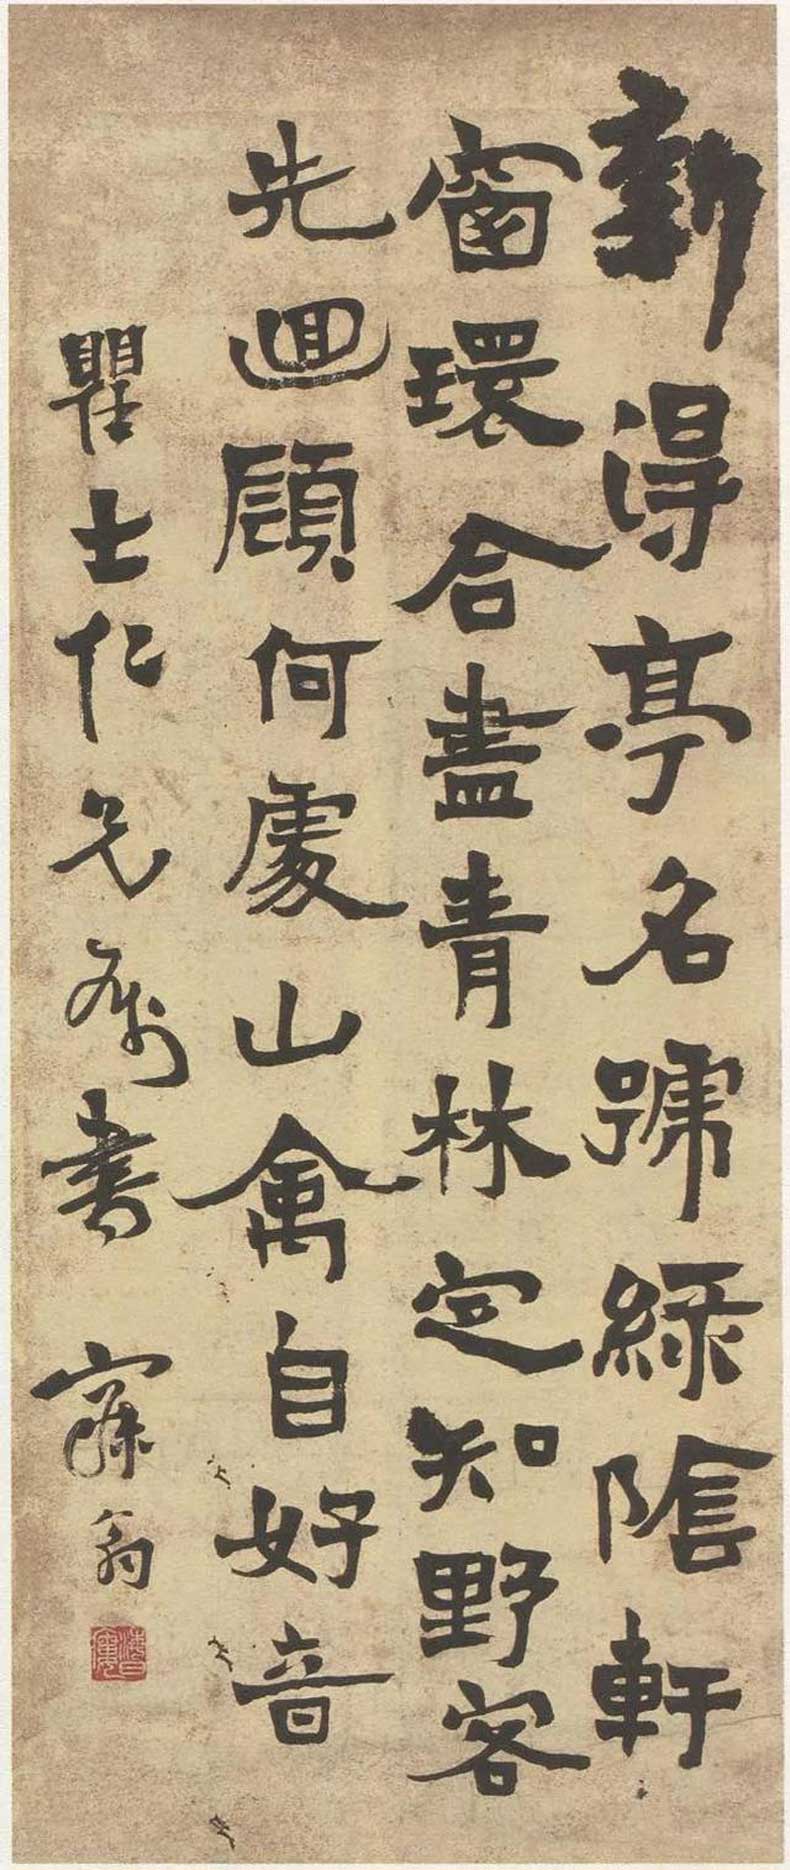 新得亭名號綠陰軒
窗環合盡青林定知野客
先迴顧何處山禽自好音
瞿士仁兄属書 寐翁
海日樓